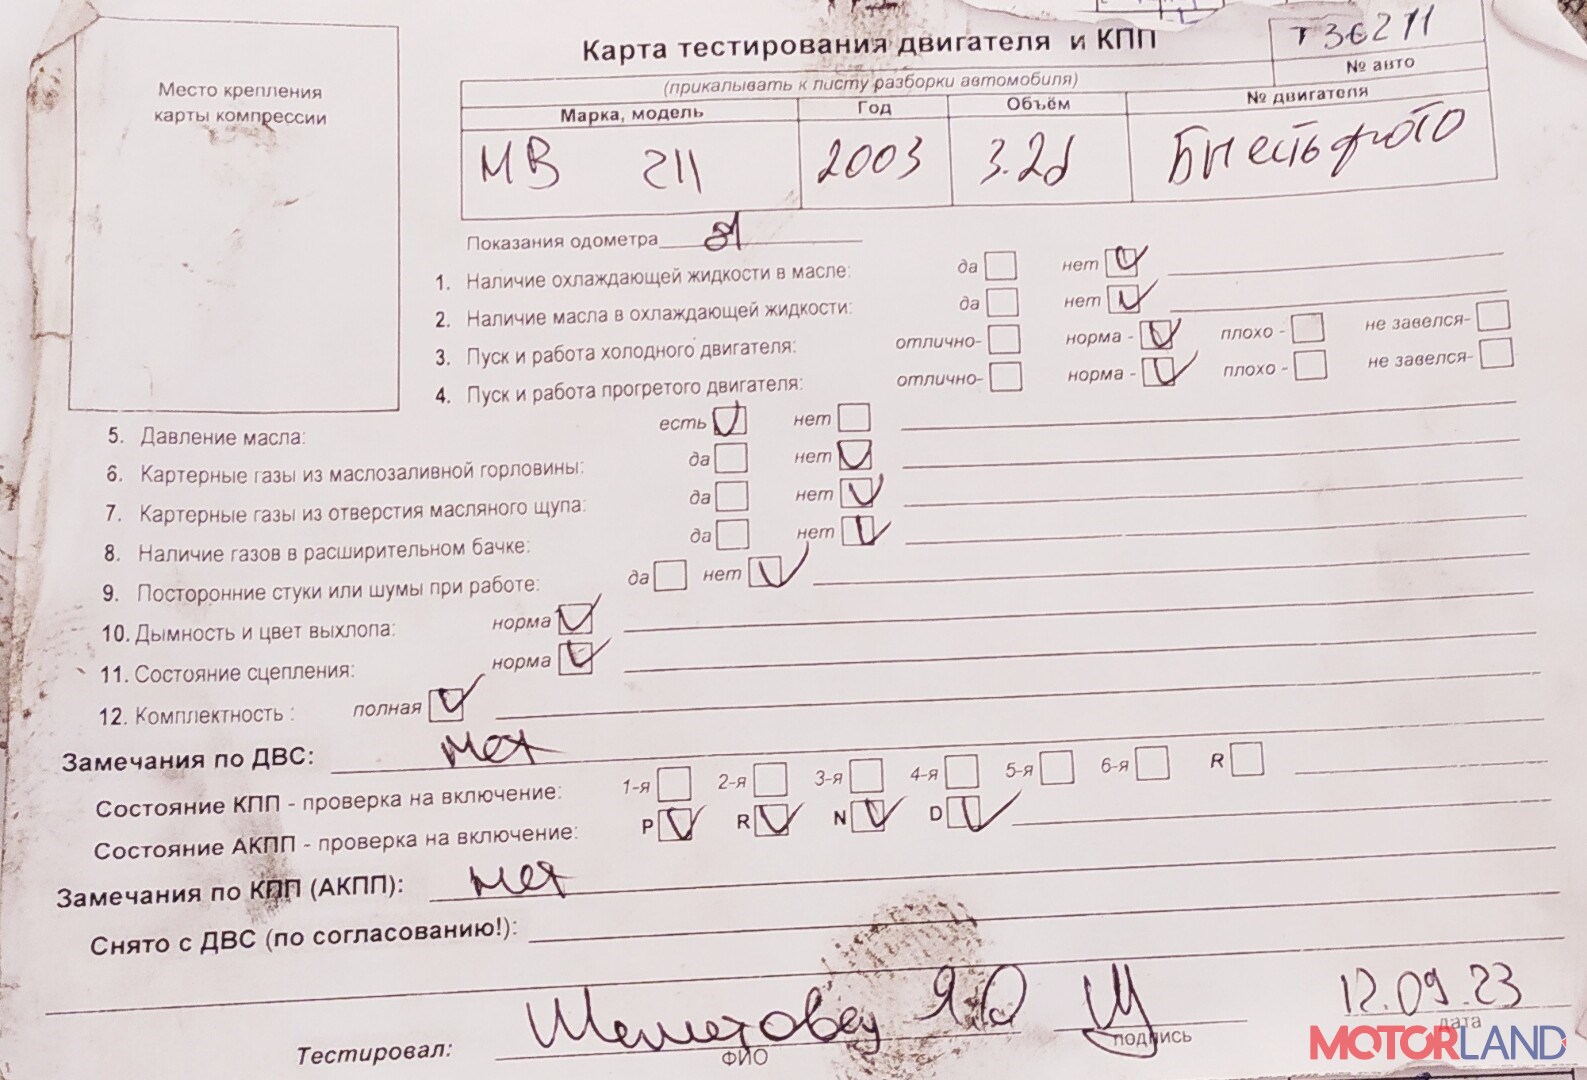 Карта тестирования двигателя и КПП
Т36211
(прикалывать к листу разборки автомобиля)
№ авто
Место крепления
карты компрессии
Марка, модель Год Объём № двигателя
МВ 211 2003 3.2d БН есть фото
Показания одометра
1. Наличие охлаждающей жидкости в масле: да нет
2. Наличие масла в охлаждающей жидкости: да нет
3. Пуск и работа холодного двигателя: отлично- норма - плохо - не завелся-
4. Пуск и работа прогретого двигателя: отлично- норма - плохо - не завелся-
5. Давление масла: есть нет
6. Картерные газы из маслозаливной горловины: да нет
7. Картерные газы из отверстия масляного щупа: да нет
8. Наличие газов в расширительном бачке: да нет
9. Посторонние стуки или шумы при работе: да нет
10. Дымность и цвет выхлопа: норма
11. Состояние сцепления: норма
12. Комплектность : полная
Замечания по ДВС: нет
Состояние КПП - проверка на включение: 1-я 2-я 3-я 4-я 5-я 6-я R
Состояние АКПП - проверка на включение: P R N D
Замечания по КПП (АКПП): нет
Снято с ДВС (по согласованию!):
Тестировал: 12.09.23
ФИО подпись дата
MOTORLAND